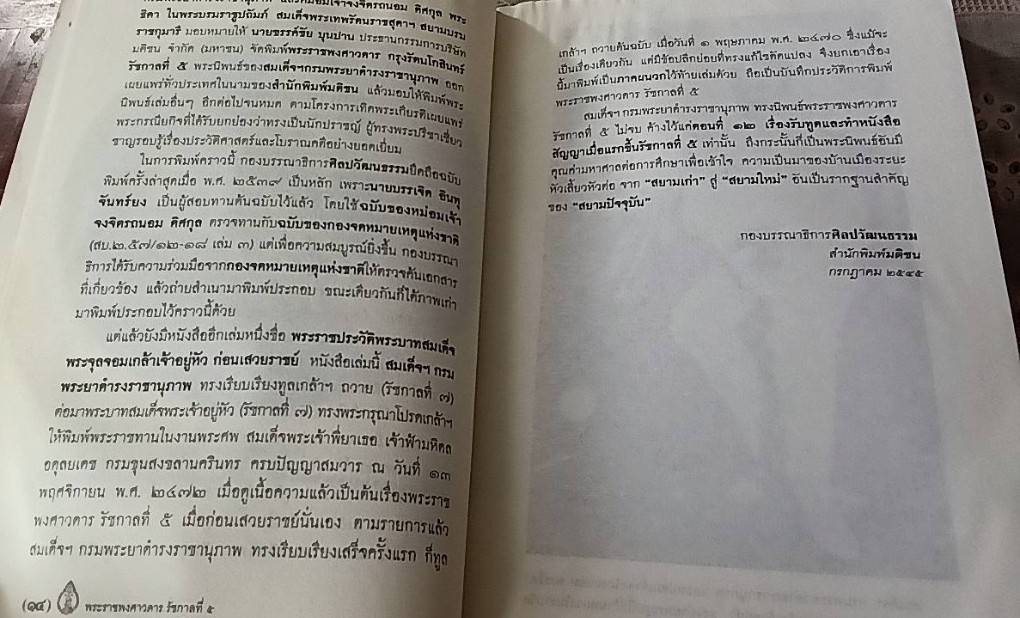 ธิดา ในพระบรมราชูปถัมภ์ สมเด็จพระเทพรัตนราชสุดาฯ สยามบรม
ราชกุมารี มอบหมายให้ นายขรรค์ชัย บุนปาน ประธานกรรมการบริษัท
มติชน จำกัด (มหาชน) จัดพิมพ์พระราชพงศาวดาร กรุงรัตนโกสินทร์
รัชกาลที่ ๕ พระนิพนธ์ของสมเด็จฯกรมพระยาดำรงราชานุภาพ ออก
เผยแพร่ทั่วประเทศในนามของสำนักพิมพ์มติชน แล้วมอบให้พิมพ์พระ
นิพนธ์เล่มอื่นๆ อีกต่อไปจนหมด ตามโครงการเทิดพระเกียรติเผยแพร่
พระกรณียกิจที่ได้รับยกย่องว่าทรงเป็นนักปราชญ์ ผู้ทรงพระปรีชาเชี่ยว
ชาญรอบรู้เรื่องประวัติศาสตร์และโบราณคดีอย่างยอดเยี่ยม
ในการพิมพ์คราวนี้ กองบรรณาธิการศิลปวัฒนธรรมยึดถือฉบับ
พิมพ์ครั้งล่าสุดเมื่อ พ.ศ. ๒๕๓๙ เป็นหลัก เพราะนายบรรเจิด อินทุ
จันทร์ยง เป็นผู้สอบทานต้นฉบับไว้แล้ว โดยใช้ฉบับของหม่อมเจ้า
จงจิตรถนอม ดิศกุล ตรวจทานกับฉบับของกองจดหมายเหตุแห่งชาติ
(สบ.๒.๕๗/๑๒-๑๘ เล่ม ๓) แต่เพื่อความสมบูรณ์ยิ่งขึ้น กองบรรณา
ธิการได้รับความร่วมมือจากกองจดหมายเหตุแห่งชาติให้ตรวจค้นเอกสาร
ที่เกี่ยวข้อง แล้วถ่ายสำเนามาพิมพ์ประกอบ ขณะเดียวกันก็ได้ภาพเก่า
มาพิมพ์ประกอบไว้คราวนี้ด้วย
แต่แล้วยังมีหนังสืออีกเล่มหนึ่งชื่อ พระราชประวัติพระบาทสมเด็จ
พระจุลจอมเกล้าเจ้าอยู่หัว ก่อนเสวยราชย์ หนังสือเล่มนี้ สมเด็จฯ กรม
พระยาดำรงราชานุภาพ ทรงเรียบเรียงทูลเกล้าฯ ถวาย (รัชกาลที่ ๗)
ต่อมาพระบาทสมเด็จพระเจ้าอยู่หัว (รัชกาลที่ ๗) ทรงพระกรุณาโปรดเกล้าฯ
ให้พิมพ์พระราชทานในงานพระศพ สมเด็จพระเจ้าพี่ยาเธอ เจ้าฟ้ามหิดล
อดุลยเดช กรมขุนสงขลานครินทร ครบปัญญาสมวาร ณ วันที่ ๑๓
พฤศจิกายน พ.ศ. ๒๔๗๒ เมื่อดูเนื้อความแล้วเป็นต้นเรื่องพระราช
พงศาวดาร รัชกาลที่ ๕ เมื่อก่อนเสวยราชย์นั่นเอง ตามรายการแล้ว
สมเด็จฯ กรมพระยาดำรงราชานุภาพ ทรงเรียบเรียงเสร็จครั้งแรก ก็ทูล
(๑๔) พระราชพงศาวดาร รัชกาลที่ ๕
เกล้าฯ ถวายต้นฉบับ เมื่อวันที่ ๑ พฤษภาคม พ.ศ. ๒๔๗๐ ซึ่งแม้จะ
เป็นเรื่องเดียวกัน แต่มีข้อปลีกย่อยที่ทรงแก้ไขดัดแปลง จึงยกเอาเรื่อง
นี้มาพิมพ์เป็นภาคผนวกไว้ท้ายเล่มด้วย ถือเป็นบันทึกประวัติการพิมพ์
พระราชพงศาวดาร รัชกาลที่ ๕
สมเด็จฯ กรมพระยาดำรงราชานุภาพ ทรงนิพนธ์พระราชพงศาวดาร
รัชกาลที่ ๕ ไม่จบ ค้างไว้แค่ตอนที่ ๑๒ เรื่องรับทูตและทำหนังสือ
สัญญาเมื่อแรกขึ้นรัชกาลที่ ๕ เท่านั้น ถึงกระนั้นก็เป็นพระนิพนธ์อันมี
คุณค่ามหาศาลต่อการศึกษาเพื่อเข้าใจ ความเป็นมาของบ้านเมืองระยะ
หัวเลี้ยวหัวต่อ จาก "สยามเก่า" สู่ "สยามใหม่" อันเป็นรากฐานสำคัญ
ของ "สยามปัจจุบัน"
กองบรรณาธิการศิลปวัฒนธรรม
สำนักพิมพ์มติชน
กรกฎาคม ๒๕๔๕